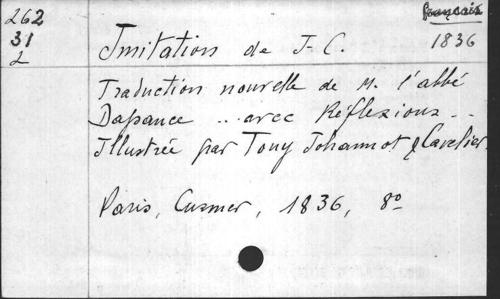 262
31
2
français
1836
Imitation de J-C.
Traduction nouvelle de M. l'abbé
Dassance .. avec Réflexions ..
Illustrée par Tony Johannot & Cavelier.
Paris, Curmer, 1836, 8º